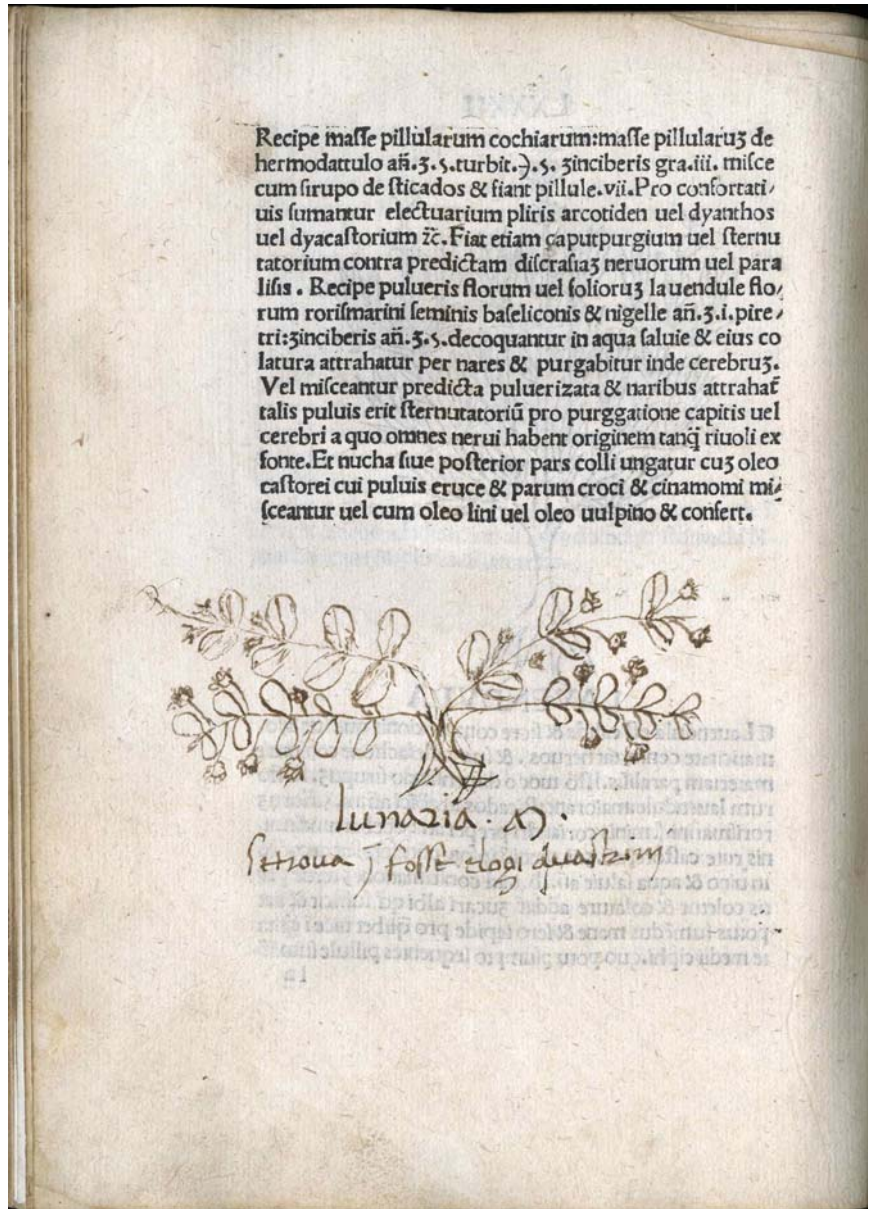 Recipe maſſe pillularum cochiarum:maſſe pillularuꝫ de
hermodattulo añ.ʒ.s.turbit.℈.s. ʒinciberis gra.iii. miſce
cum ſirupo de ſticados & fiant pillule.vii.Pro confortati/
uis ſumantur electuarium pliris arcotiden uel dyanthos
uel dyacaſtorium ⁊c̄.Fiat etiam caputpurgium uel ſternu
tatorium contra predictam diſcraſiaꝫ neruorum uel para
liſis. Recipe pulueris florum uel folioruꝫ lauendule flo/
rum roriſmarini ſeminis baſeliconis & nigelle añ.ʒ.i.pire/
tri:ʒinciberis añ.ʒ.s.decoquantur in aqua ſaluie & eius co
latura attrahatur per nares & purgabitur inde cerebruꝫ.
Vel miſceantur predicta puluerizata & naribus attrahat̃
talis puluis erit ſternutatoriũ pro purggatione capitis uel
cerebri a quo omnes nerui habent originem tanq̃ riuoli ex
fonte.Et nucha ſiue poſterior pars colli ungatur cuꝫ oleo
caſtorei cui puluis eruce & parum croci & cinamomi mi/
ſceantur uel cum oleo lini uel oleo uulpino & confert.
lunaria
ſetroua foſſe